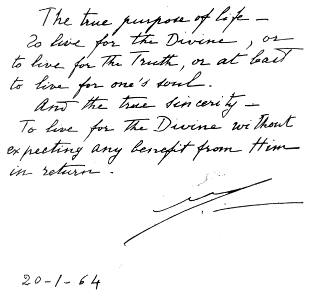 The true purpose of life –
To live for the Divine, or
to live for the Truth, or at least
to live for one's soul.
And the true sincerity –
To live for the Divine without
expecting any benefit from Him
in return.
20-1-64